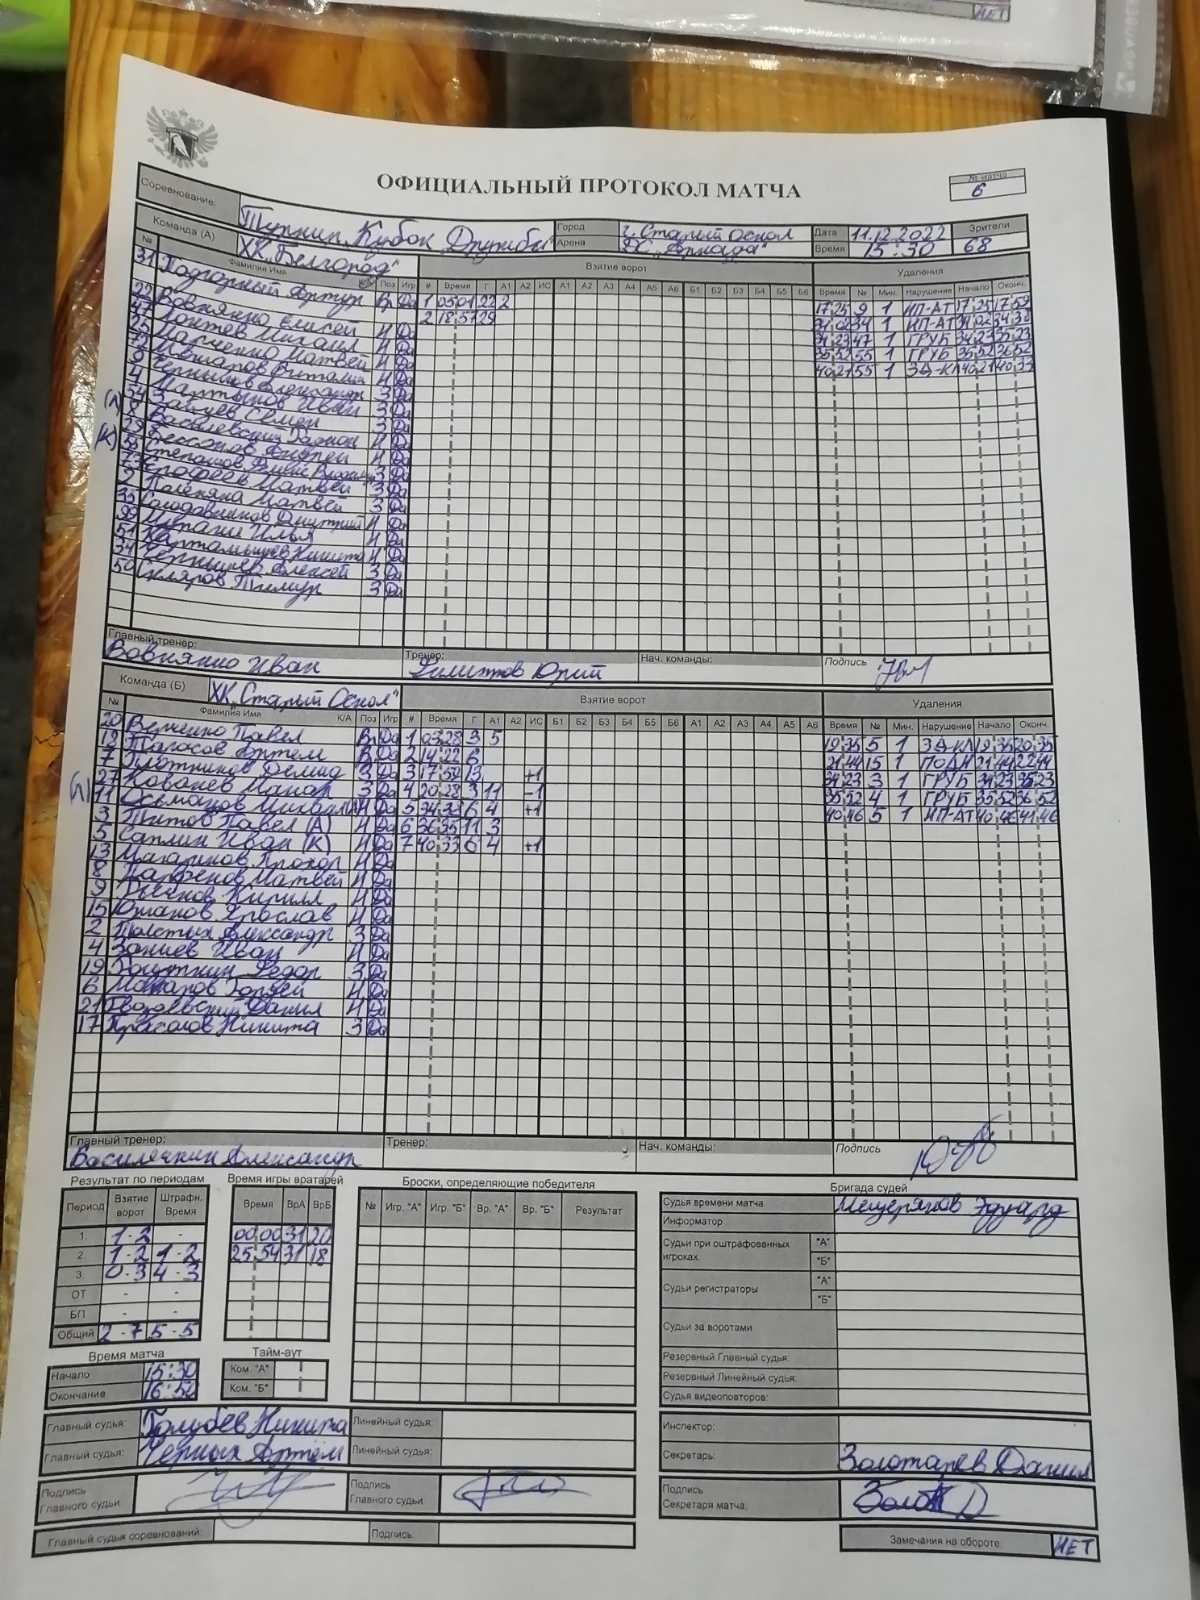 НЕТ
ОФИЦИАЛЬНЫЙ ПРОТОКОЛ МАТЧА
№ матча
6
Соревнование: Турнир "Кубок Дружбы" Город г. Старый Оскол Дата 11.12.2022 Зрители
Арена ЛС "Аркада" Время 15:30 68
Команда (А) ХК "Белгород" Взятие ворот Удаления
№ Фамилия Имя Поз Игр # Время Г А1 А2 ИС А1 А2 А3 А4 А5 А6 Б1 Б2 Б3 Б4 Б5 Б6 Время № Мин. Нарушение Начало Оконч.
31 Подгорный Артур Вр Да 1 05:01 22 2 17:25 9 1 ИП-АТ 17:25 17:59
22 Вовнянко Елисей Н Да 2 18:57 29 31:02 34 1 ИП-АТ 31:02
Михаил Н Да 34:23 47 1 ГРУБ 34:23 35:23
Марченко Матвей Н Да 35:52 55 1 ГРУБ 35:52 36:52
Виталий Н Да 40:21 55 1 ЗД-КЛ 40:21 40:33
Чернышев Александр З Да
4 Мартынов Иван З Да
Зайцев Семен З Да
Василевский Н Да
Бессонов Андрей Н Да
Степанов З Да
Ерофеев Матвей З Да
2 Матвей З Да
Дмитрий Н Да
99 Илья Н Да
51 Картамышев Никита Н Да
34 Чернышев Алексей З Да
50 Скляров Тимур З Да
Главный тренер: Тренер: Нач. команды: Подпись
Вовнянко Иван Филиппов Юрий
Команда (Б) ХК "Старый Оскол" Взятие ворот Удаления
№ Фамилия Имя К/А Поз Игр # Время Г А1 А2 ИС Б1 Б2 Б3 Б4 Б5 Б6 А1 А2 А3 А4 А5 А6 Время № Мин. Нарушение Начало Оконч.
20 Верченко Павел Вр Да 1 03:28 3 5 19:35 5 1 ЗД-КЛ 19:35 20:35
Тарасов Артем Вр Да 2 14:22 6 21:44 15 1 ПОДН 21:44 22:44
7 Плотников Демид З Да 3 17:59 13 +1 34:23 3 1 ГРУБ 34:23 35:23
27 Ковалев Макар З Да 4 20:28 3 11 -1 35:52 4 1 ГРУБ 35:52 36:52
11 Н Да 5 34:32 6 4 +1 40:46 5 1 ИП-АТ 40:46 41:46
3 Титов Павел (А) Н Да 6 36:35 11 3
5 Саплин Иван (К) Н Да 7 40:33 6 4 +1
13 Прохор Н Да
8 Парфенов Матвей Н Да
9 Кирилл Н Да
15 Южаков Ярослав Н Да
2 Толстых Александр З Да
4 Иван Н Да
19 Федор З Да
6 Макаров Гордей Н Да
21 Гвоздевский Данил Н Да
17 Никита З Да
Главный тренер: Тренер: Нач. команды: Подпись
Василечкин Александр
Результат по периодам Время игры вратарей Броски, определяющие победителя Бригада судей
Период Взятие ворот Штрафн. Время Время ВрА ВрБ № Игр. "А" Игр. "Б" Вр. "А" Вр. "Б" Результат
1. 1-2 - 00:00 31 20
2. 1-2 1-2 25:54 31 18
3. 0-3 4-3
ОТ - -
БП - -
Общий 2-7 5-5
Судья времени матча Мещеряков Эдуард
Информатор
Судьи при оштрафованных игроках: "А" "Б"
Судьи регистраторы "А" "Б"
Судьи за воротами
Резервный Главный судья:
Резервный Линейный судья:
Судья видеоповторов:
Время матча Тайм-аут
Начало 15:30 Ком. "А"
Окончание 16:52 Ком. "Б"
Главный судья: Голубев Никита Линейный судья:
Главный судья: Черных Артём Линейный судья:
Инспектор:
Секретарь: Золотарев Данил
Подпись Главного судьи Подпись Главного судьи
Подпись Секретаря матча:
Главный судья соревнований: Подпись:
Замечания на обороте: НЕТ